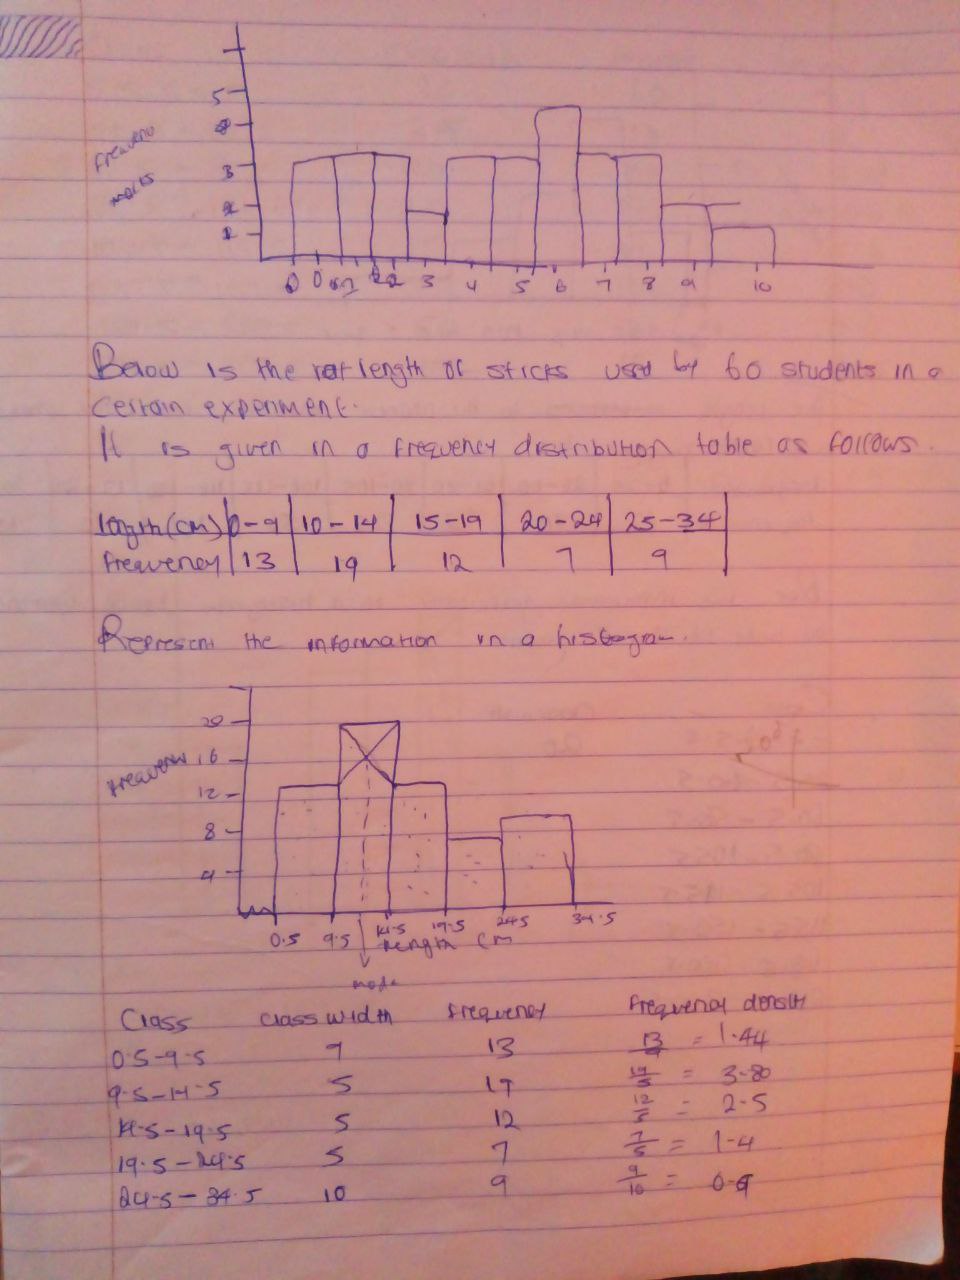 5
4
3
2
1
frequency
marks
3 4 5 6 7 8 9 10
Below is the length of sticks used by 60 students in a
certain experiment.
It is given in a frequency distribution table as follows.
length(cm) 0-9 10-14 15-19 20-24 25-34
frequency 13 19 12 7 9
Represent the information in a histogram.
20
16
12
8
4
frequency
0.5 9.5 14.5 19.5 24.5 34.5
length cm
mode
Class class width frequency frequency density
0.5-9.5 9 13 13/9 = 1.44
9.5-14.5 5 19 19/5 = 3.80
14.5-19.5 5 12 12/5 = 2.5
19.5-24.5 5 7 7/5 = 1.4
24.5-34.5 10 9 9/10 = 0.9